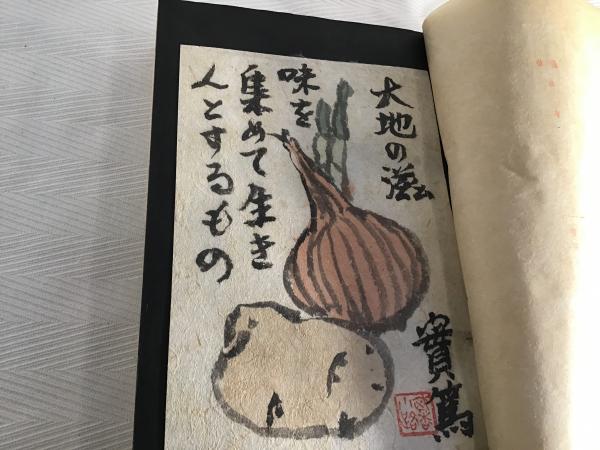 大地の滋
味を
集めて生き
んとするもの
實篤